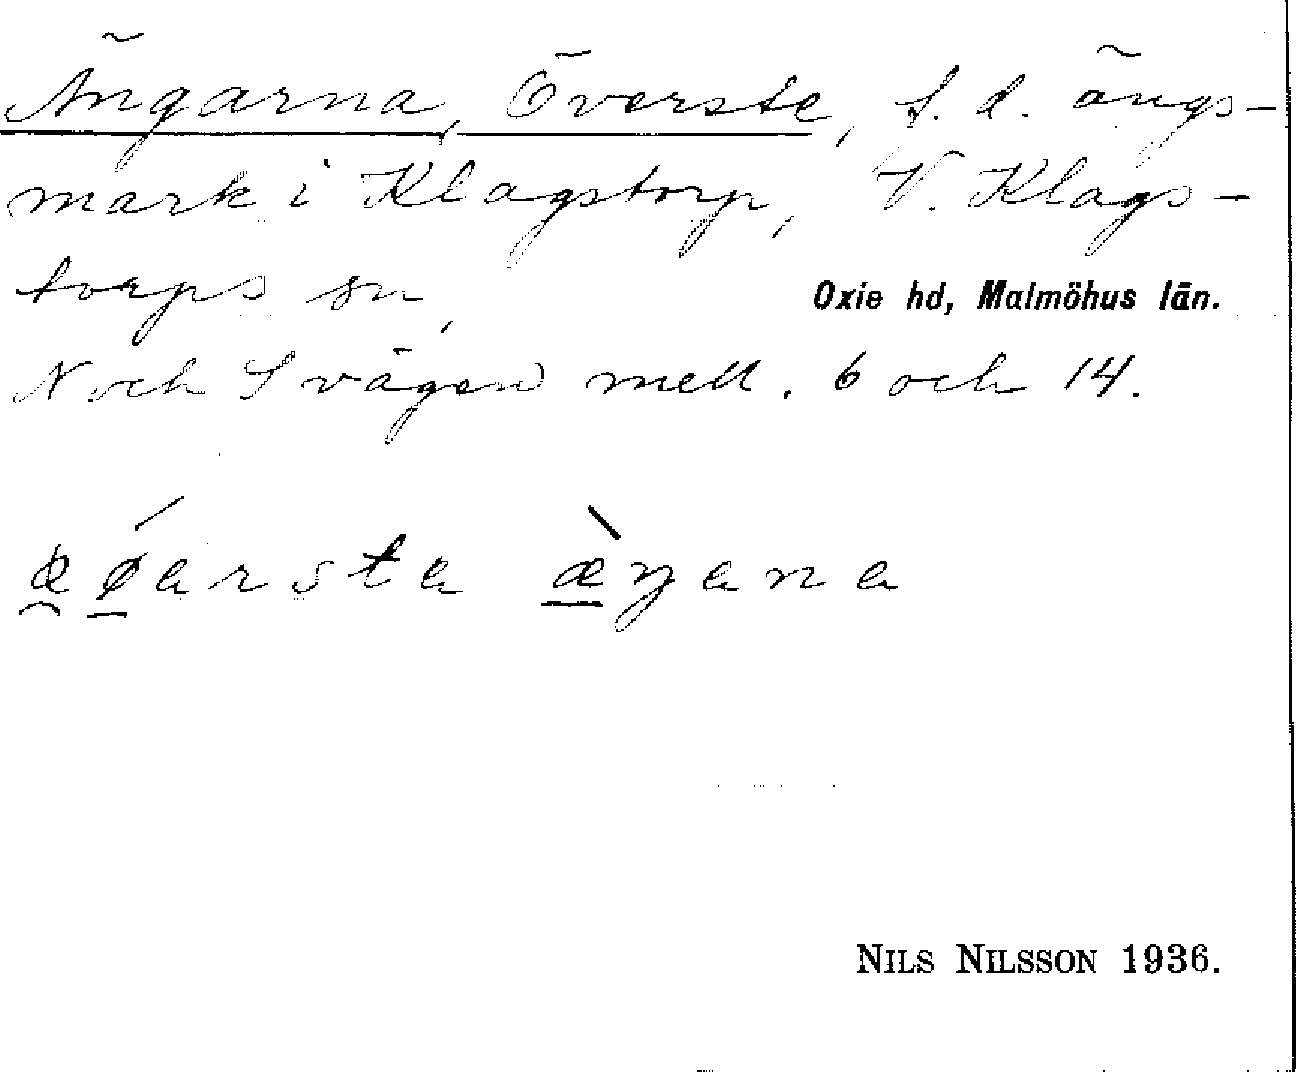 Ängarna, Överste, f. d. ängs-
mark i Klagstorp, V. Klags-
torps sn,
Oxie hd, Malmöhus län.
N och S vägen mell. 6 och 14.
NILS NILSSON 1936.